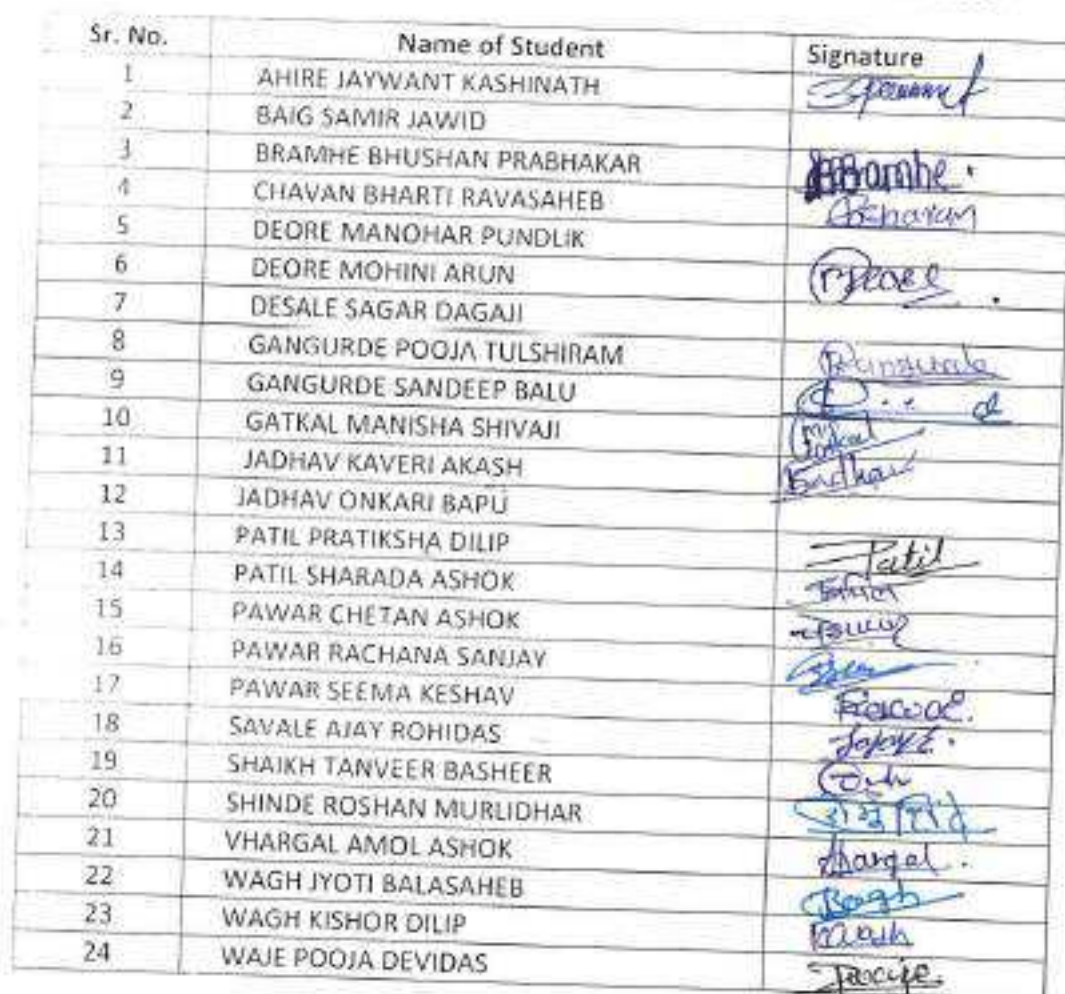 Sr. No. Name of Student Signature
1 AHIRE JAYWANT KASHINATH
2 BAIG SAMIR JAWID
3 BRAMHE BHUSHAN PRABHAKAR BBramhe.
4 CHAVAN BHARTI RAVASAHEB
5 DEORE MANOHAR PUNDLIK
6 DEORE MOHINI ARUN
7 DESALE SAGAR DAGAJI
8 GANGURDE POOJA TULSHIRAM
9 GANGURDE SANDEEP BALU
10 GATKAL MANISHA SHIVAJI
11 JADHAV KAVERI AKASH
12 JADHAV ONKARI BAPU
13 PATIL PRATIKSHA DILIP Patil
14 PATIL SHARADA ASHOK
15 PAWAR CHETAN ASHOK
16 PAWAR RACHANA SANJAY
17 PAWAR SEEMA KESHAV
18 SAVALE AJAY ROHIDAS
19 SHAIKH TANVEER BASHEER
20 SHINDE ROSHAN MURLIDHAR
21 VHARGAL AMOL ASHOK
22 WAGH JYOTI BALASAHEB
23 WAGH KISHOR DILIP
24 WAJE POOJA DEVIDAS